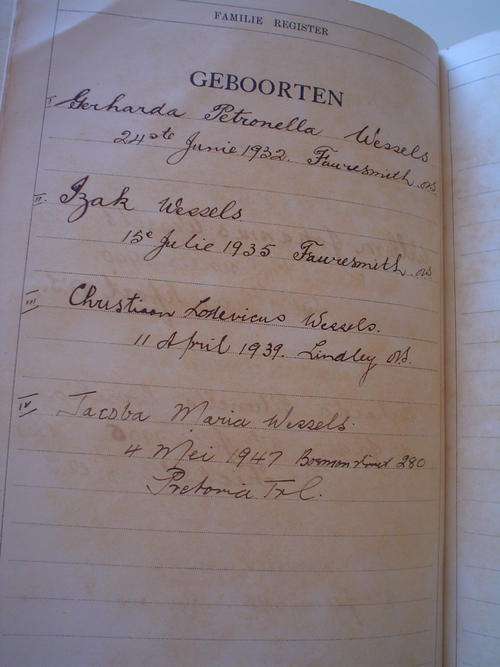 FAMILIE REGISTER
GEBOORTEN
I Gerharda Petronella Wessels
24ste Junie 1932. Fauresmith OVS.
II. Izak Wessels
15e Julie 1935 Fauresmith OVS
III Christiaan Lodevicus Wessels.
11 April 1939. Lindley OVS.
IV Jacoba Maria Wessels.
4 Mei 1947 280
Pretoria Trl.